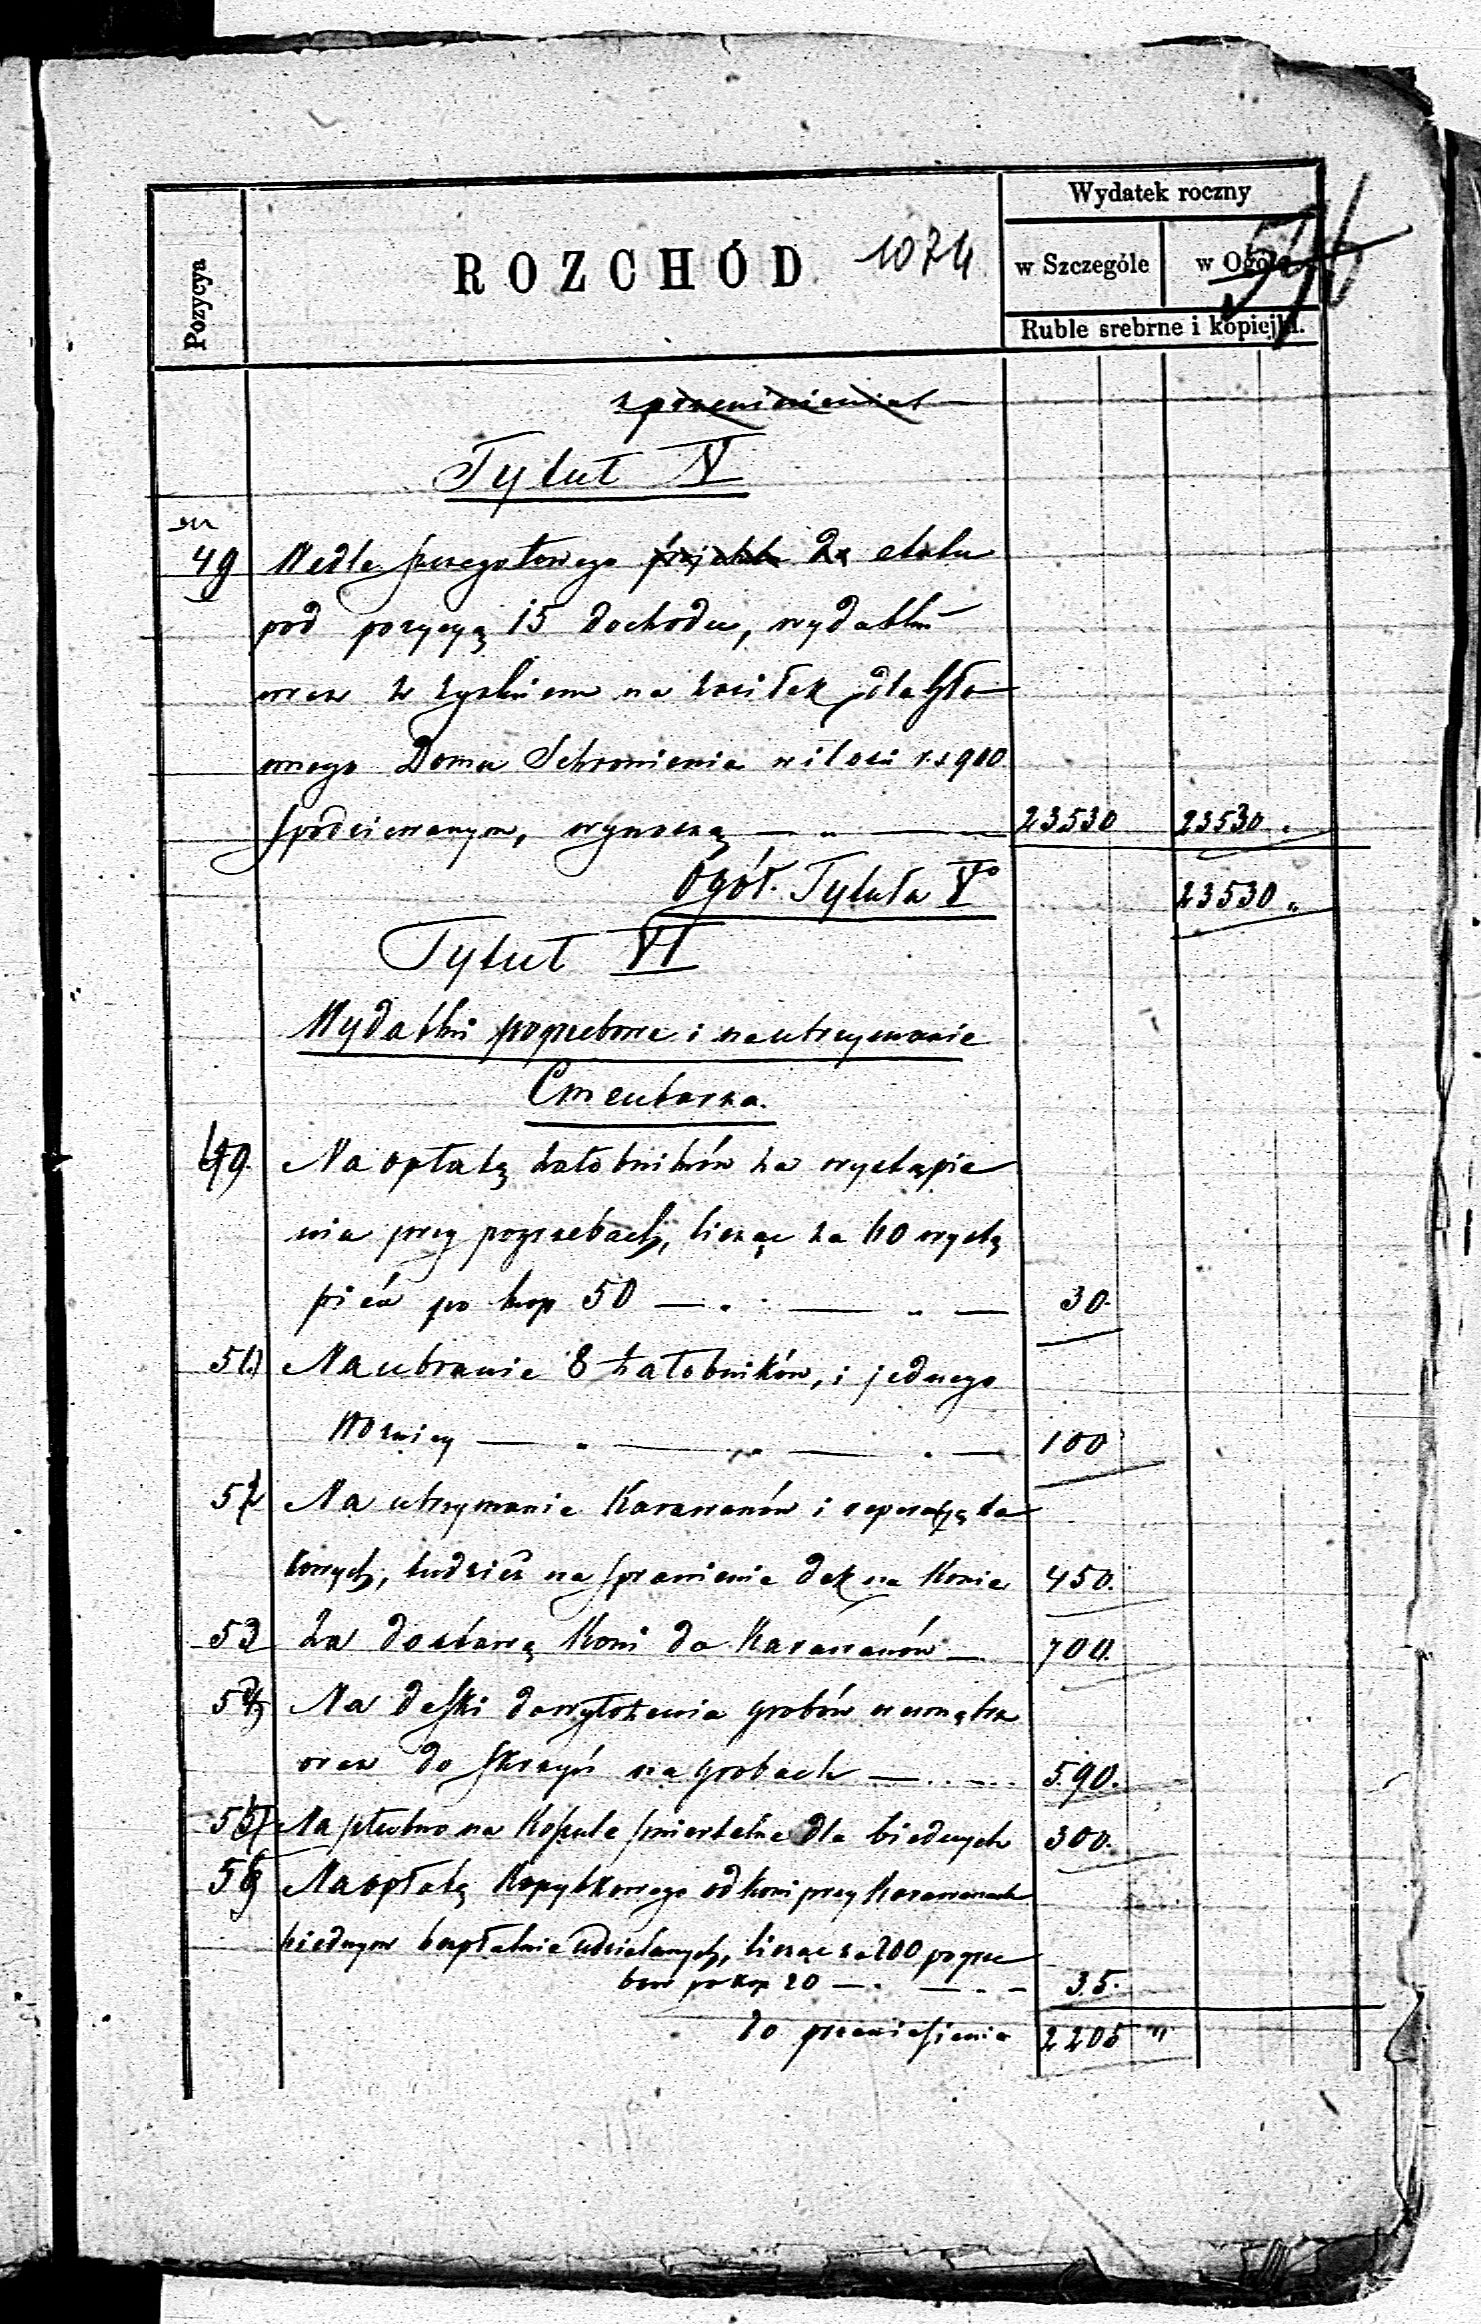 Wydatek roczny
Pozycya
ROZCHÓD 1074
w Szczególe
w Ogóle
Ruble srebrne i kopiejki.
z przeniesienia
Tytuł V
49 Wedle szczegółowego etatu
pod pozycyą 15 dochodu, wydatki
wraz z zyskiem na zasiłek dla Głó
wnego Domu Schronienia w ilości r.s 900
spodziewanym, wynoszą — „ — 23530 23530 „
Ogół. Tytułu Vo 23530 „
Tytuł VI
Wydatki pogrzebowe i na utrzymanie
Cmentarza.
Na opłatę żałobników za wystąpie
nia przy pogrzebach, licząc za 60 wystą
pień po kop 50 — „ — „ — 30.
Na ubranie 8 żałobników, i jednego
Woźnicy — „ — „ — „ — 100
Na utrzymanie Karawanów i reperacyą ta
kowych, tudzież na sprawienie dek na Konie 450.
Za dostawę Koni do Karawanów — 700.
Na deski do wyłożenia grobów wewnątrz
oraz do skrzyń na grobach — „ — 590.
Na płótno na Koszule śmiertelne dla biednych 300.
Na opłatę Kopytkowego od koni przy Karawanach
biednym bezpłatnie udzielanych, licząc za 200 pogrze
bów po kop 20 — „ — „ — 35.
do przeniesienia 2205 „